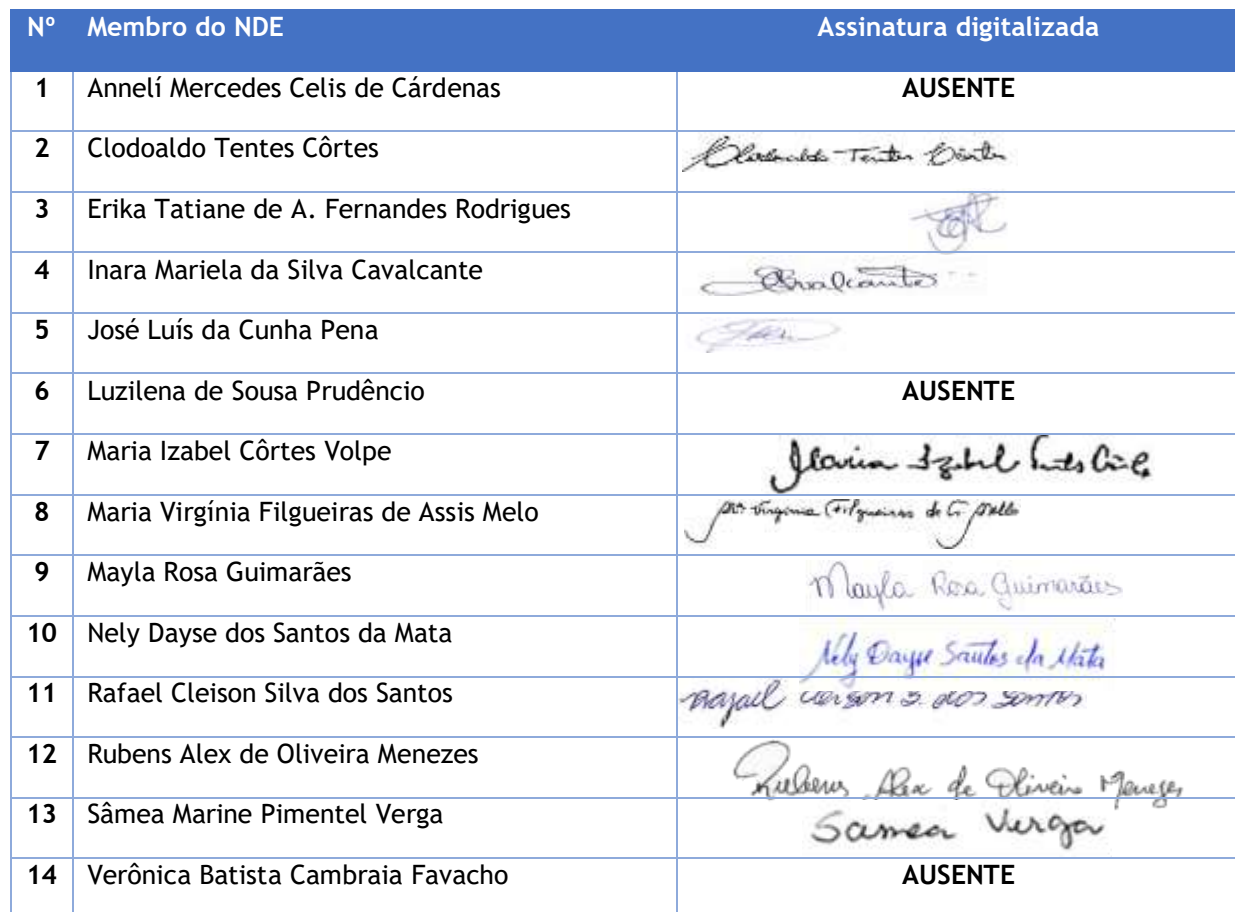 Nº Membro do NDE Assinatura digitalizada
1 Annelí Mercedes Celis de Cárdenas AUSENTE
2 Clodoaldo Tentes Côrtes Clodoaldo Tentes Côrtes
3 Erika Tatiane de A. Fernandes Rodrigues
4 Inara Mariela da Silva Cavalcante Cavalcante
5 José Luís da Cunha Pena
6 Luzilena de Sousa Prudêncio AUSENTE
7 Maria Izabel Côrtes Volpe Maria Izabel
8 Maria Virgínia Filgueiras de Assis Melo Mª Virginia Filgueiras de A. Mello
9 Mayla Rosa Guimarães Mayla Rosa Guimarães
10 Nely Dayse dos Santos da Mata Nely Dayse Santos da Mata
11 Rafael Cleison Silva dos Santos Rafael Cleison S. dos Santos
12 Rubens Alex de Oliveira Menezes Rubens Alex de Oliveira Menezes
13 Sâmea Marine Pimentel Verga Samea Verga
14 Verônica Batista Cambraia Favacho AUSENTE